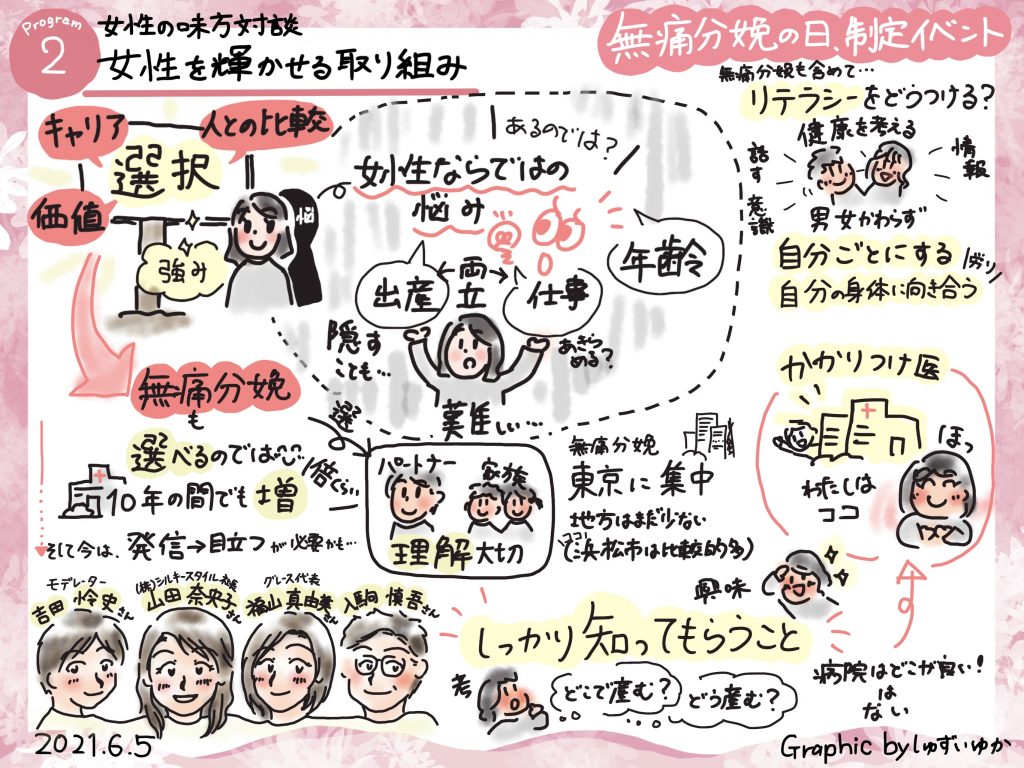 Program
2
女性の味方対談
女性を輝かせる取り組み
無痛分娩の日、制定イベント
キャリア
人との比較
選択
価値
強み
悩
あるのでは?
女性ならではの
悩み
出産
両立
仕事
年齢
隠す
ことも…
あきら
める?
難しい…
無痛分娩も含めて…
リテラシーをどうつける?
健康を考える
話す
意識
情報
男女かわらず
自分ごとにする
労り
自分の身体に向き合う
無痛分娩
も
選べるのでは
10年の間でも増
1倍くらい
そして今は、発信→目立つが必要かも…
選
パートナー
家族
理解大切
無痛分娩
東京に集中
地方はまだ少ない
ココ!
(浜松市は比較的多)
かかりつけ医
ほっ
わたしは
ココ
興味
しっかり知ってもらうこと
考
どこで産む?
どう産む?
病院はどこが良い!
は
ない
モデレーター
吉田 怜史さん
(株)シルキースタイル社長
山田 奈央子さん
グレース代表
福山 真由美さん
入駒 慎吾さん
2021.6.5
Graphic by しゅずいゆか